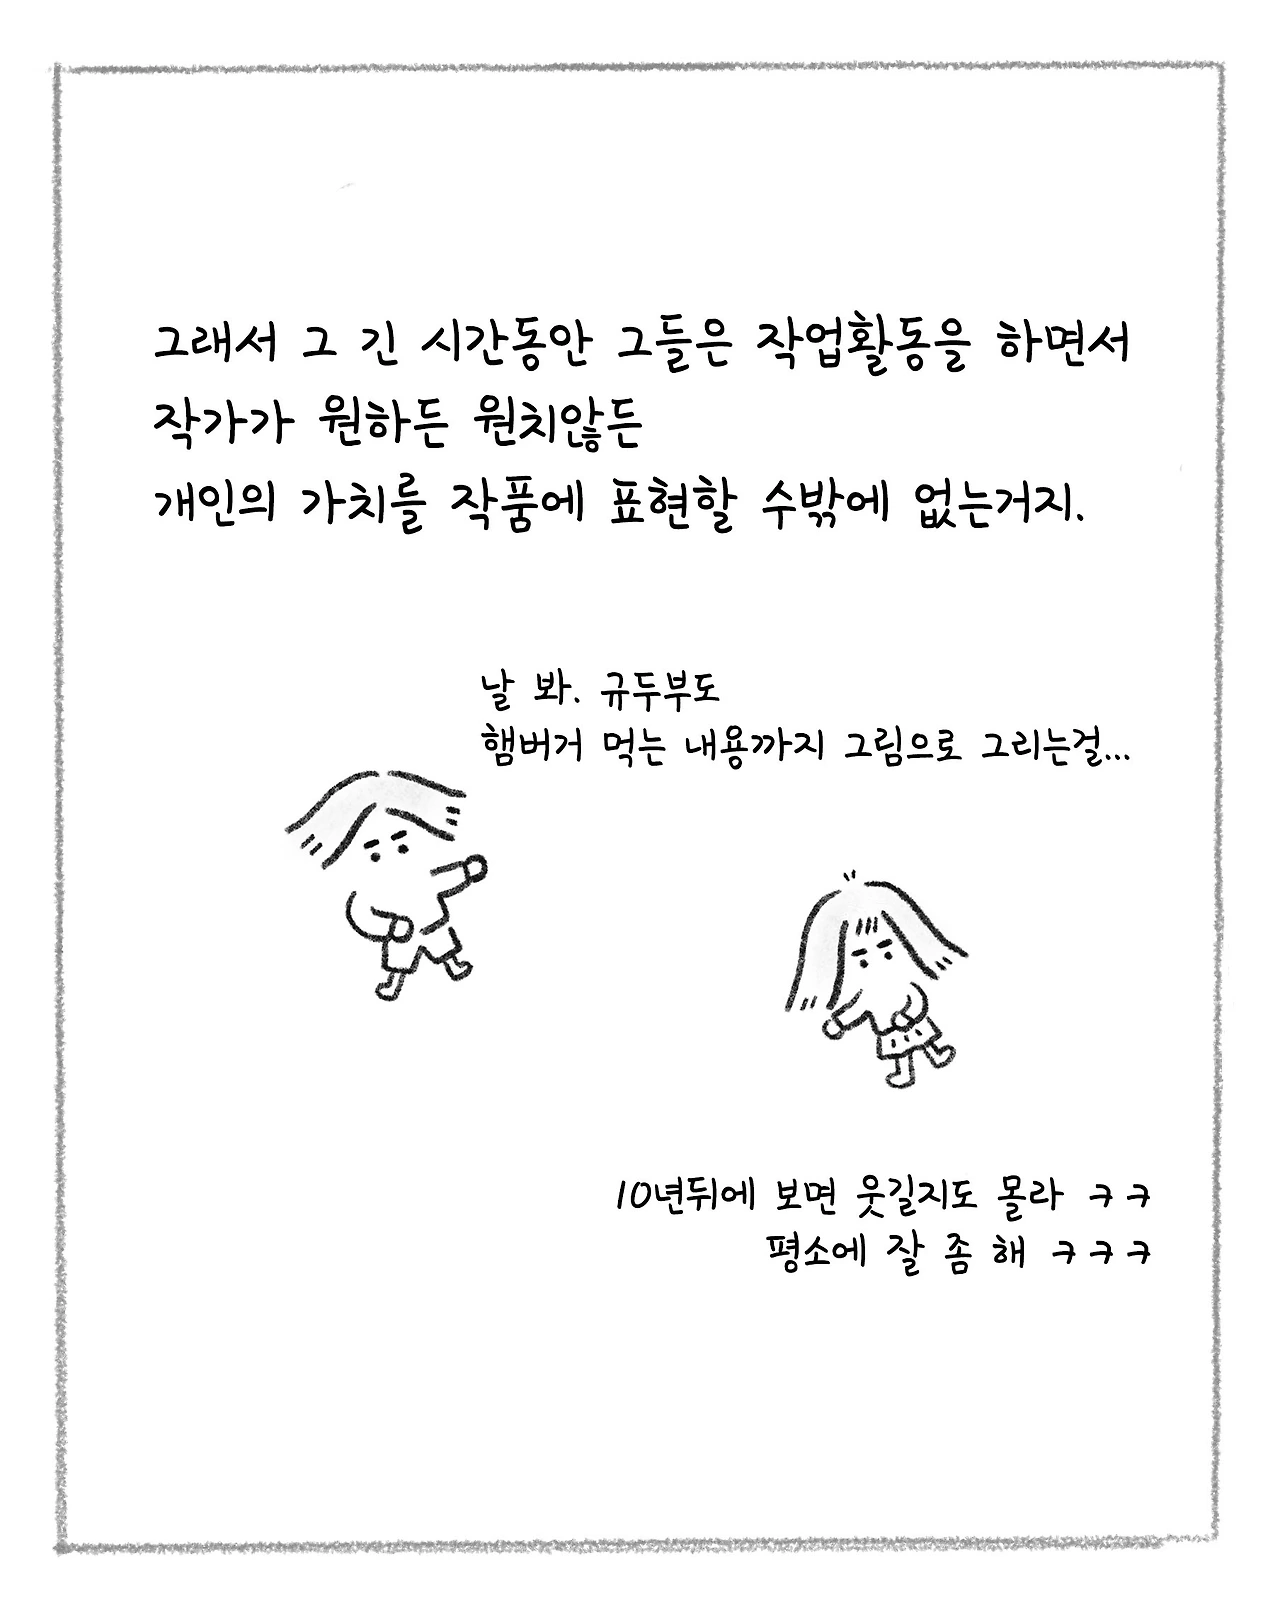 그래서 그 긴 시간동안 그들은 작업활동을 하면서
작가가 원하든 원치않든
개인의 가치를 작품에 표현할 수밖에 없는거지.
날 봐. 규두부도
햄버거 먹는 내용까지 그림으로 그리는걸...
10년뒤에 보면 웃길지도 몰라 ㅋㅋ
평소에 잘 좀 해 ㅋㅋㅋ